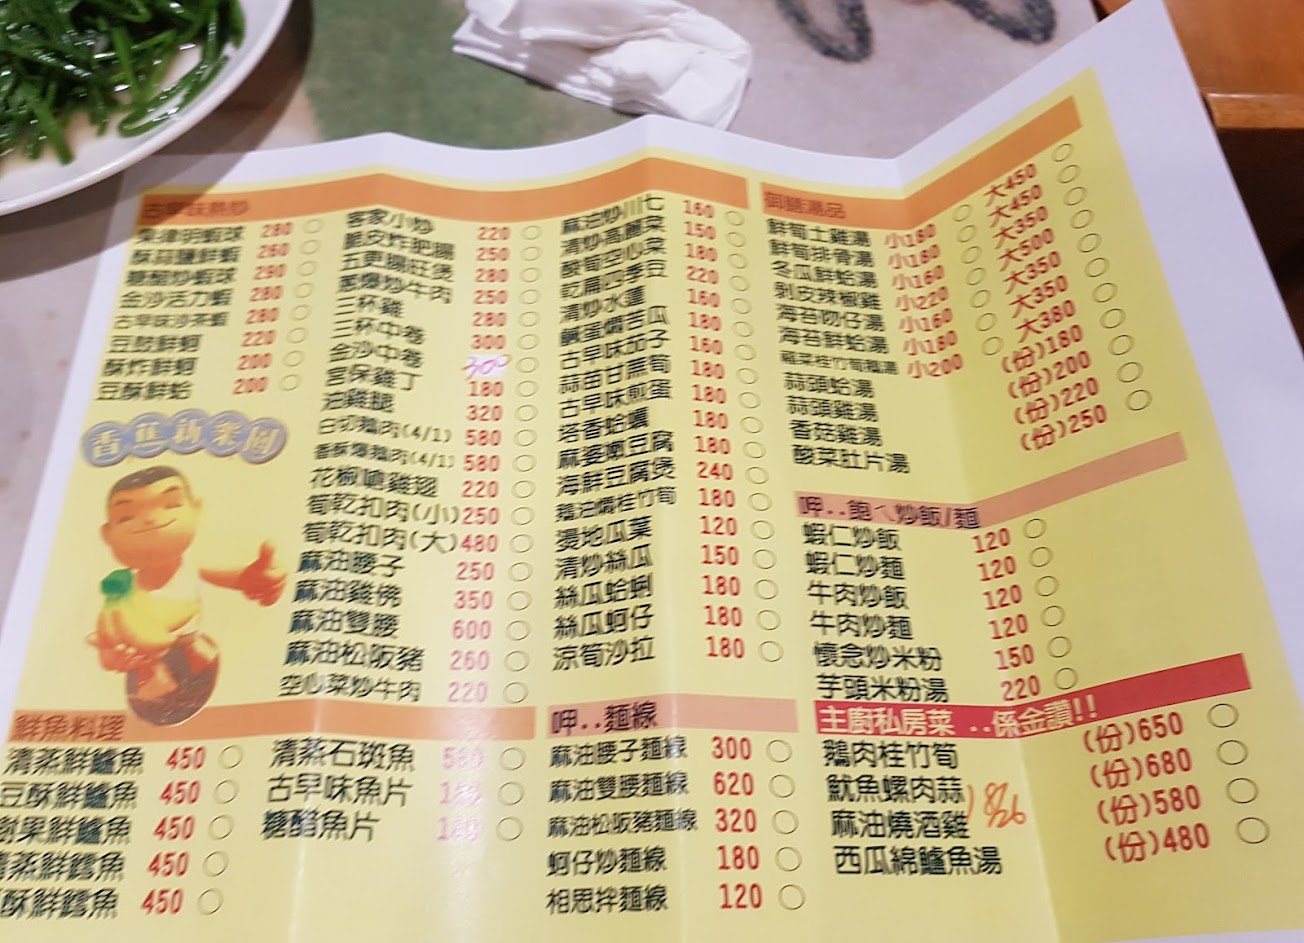 古早味熱炒
果律明蝦球 280
酥蒜鹽鮮蝦 260
糖醋炒蝦球 290
金沙活力蝦 280
古早味沙茶蝦 280
豆鼓鮮蚵 220
酥炸鮮蚵 200
豆酥鮮蛤 200
客家小炒 220
脆皮炸肥腸 250
五更腸旺煲 280
蔥爆炒牛肉 250
三杯雞 280
三杯中卷 300
金沙中卷 300
宮保雞丁 180
油雞腿 320
白切鵝肉(4/1) 580
香酥爆鵝肉(4/1) 580
花椒嗆雞翅 220
筍乾扣肉(小) 250
筍乾扣肉(大) 480
麻油腰子 250
麻油雞佛 350
麻油雙腰 600
麻油松阪豬 260
空心菜炒牛肉 220
麻油炒川七 160
清炒高麗菜 150
酸筍空心菜 180
乾扁四季豆 220
清炒水蓮 160
鹹蛋燜苦瓜 180
古早味茄子 160
蒜苗甘蔗筍 180
古早味煎蛋 180
塔香蛤蠣 180
麻婆嫩豆腐 180
海鮮豆腐煲 240
鵝油燜桂竹筍 180
燙地瓜葉 120
清炒絲瓜 150
絲瓜蛤蜊 180
絲瓜蚵仔 180
涼筍沙拉 180
御膳湯品
鮮筍土雞湯 小180 大450
鮮筍排骨湯 小180 大450
冬瓜鮮蛤湯 小160 大350
剝皮辣椒雞 小220 大500
海苔吻仔湯 小160 大350
海苔鮮蛤湯 小180 大350
福菜桂竹筍鵝湯 小200 大380
蒜頭蛤湯 (份)180
蒜頭雞湯 (份)200
香菇雞湯 (份)220
酸菜肚片湯 (份)250
呷..飽ㄟ炒飯/麵
蝦仁炒飯 120
蝦仁炒麵 120
牛肉炒飯 120
牛肉炒麵 120
懷念炒米粉 150
芋頭米粉湯 220
香蕉新樂園
鮮魚料理
清蒸鮮鱸魚 450
豆酥鮮鱸魚 450
樹果鮮鱸魚 450
清蒸鮮鱈魚 450
酥鮮鱈魚 450
清蒸石斑魚 580
古早味魚片 180
糖醋魚片 180
呷..麵線
麻油腰子麵線 300
麻油雙腰麵線 620
麻油松阪豬麵線 320
蚵仔炒麵線 180
相思拌麵線 120
主廚私房菜 ..係金讚!!
鵝肉桂竹筍 (份)650
魷魚螺肉蒜 (份)680
麻油燒酒雞 (份)580
西瓜綿鱸魚湯 (份)480
8/26